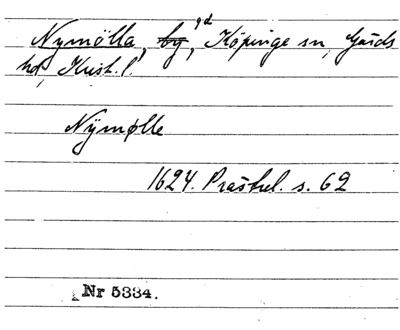 Nymölla, by, gd, Köpinge sn, Gärds
hd, Krist. l.
Nÿmølle
1624. Prästrel. s. 62
Nr 5334.